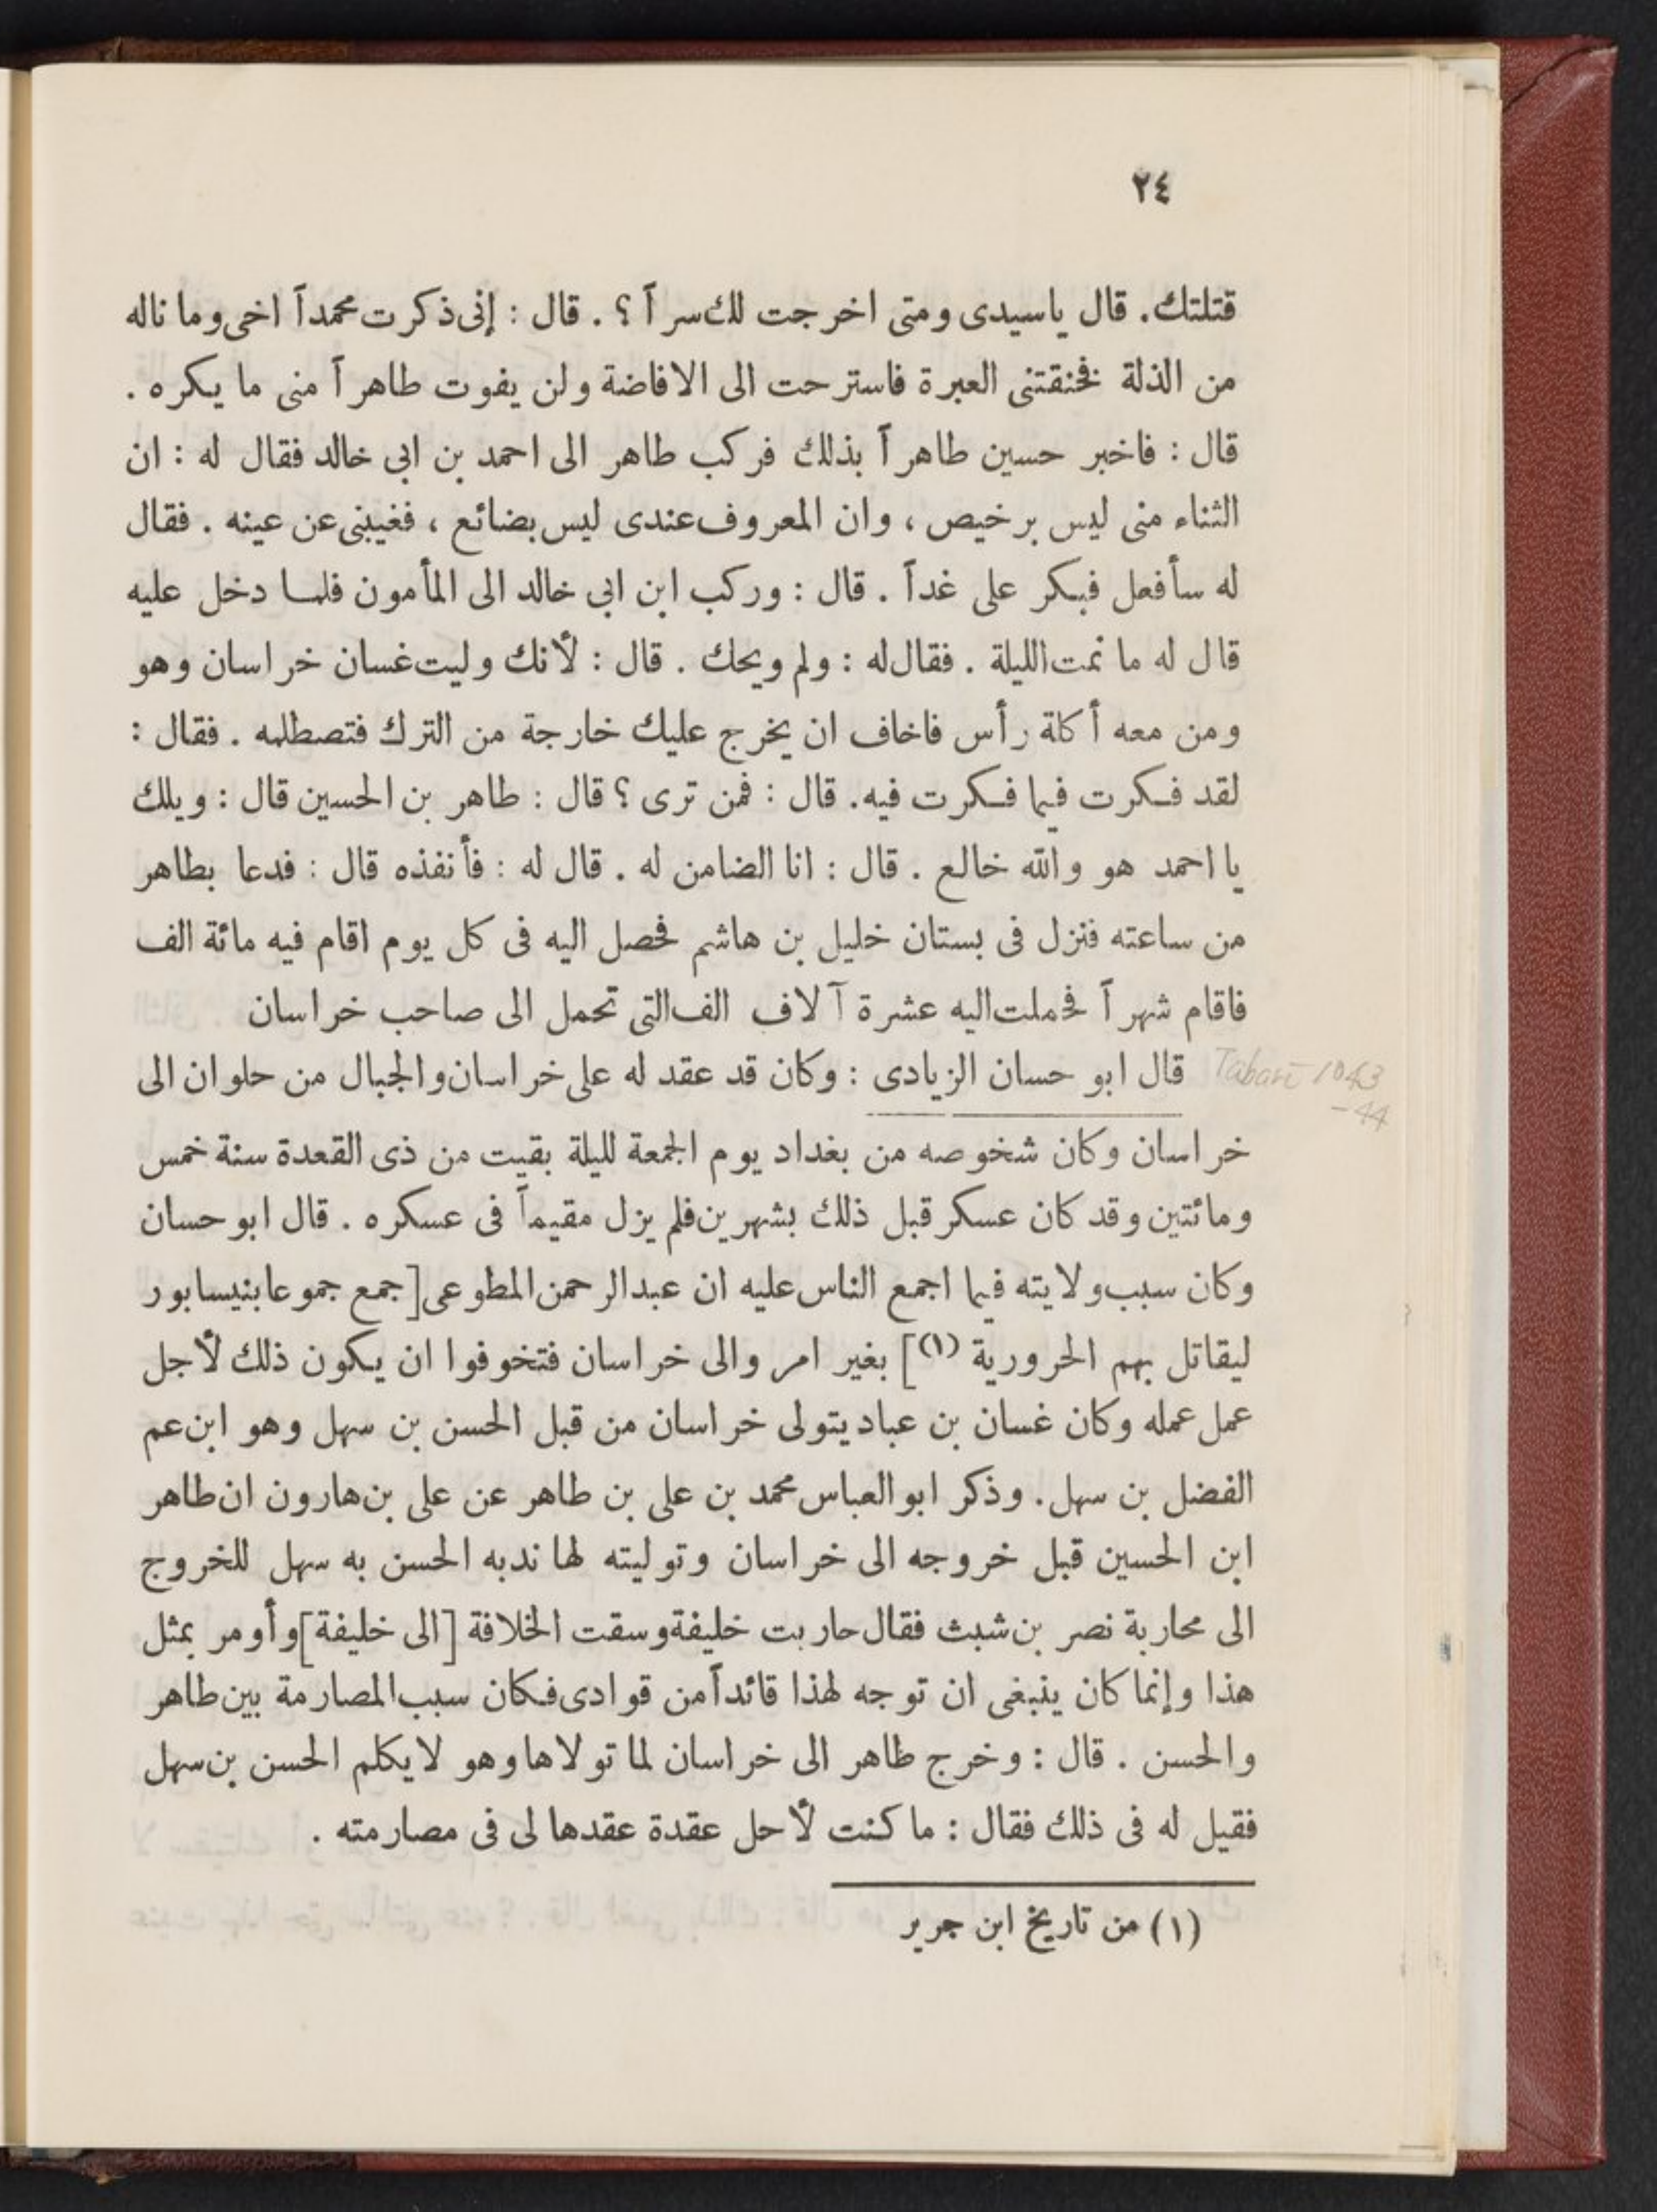 ٢٤
قتلتك. قال ياسيدى ومتى اخرجت لك سراً ؟ . قال : إنى ذكرت محمداً اخى وما ناله
من الذلة فخنقتنى العبرة فاسترحت الى الافاضة ولن يفوت طاهراً منى ما يكره .
قال : فاخبر حسين طاهراً بذلك فركب طاهر الى احمد بن ابى خالد فقال له : ان
الثناء منى ليس برخيص ، وان المعروف عندى ليس بضائع ، فغيبنى عن عينه . فقال
له سأفعل فبكر على غداً . قال : وركب ابن ابى خالد الى المأمون فلما دخل عليه
قال له ما نمت الليلة . فقال له : ولم ويحك . قال : لأنك وليت غسان خراسان وهو
ومن معه أكلة رأس فاخاف ان يخرج عليك خارجة من الترك فتصطلمه . فقال :
لقد فكرت فيما فكرت فيه. قال : فمن ترى ؟ قال : طاهر بن الحسين قال : ويلك
يا احمد هو والله خالع . قال : انا الضامن له . قال له : فأنفذه قال : فدعا بطاهر
من ساعته فنزل فى بستان خليل بن هاشم فحصل اليه فى كل يوم اقام فيه مائة الف
فاقام شهراً فحملت اليه عشرة آلاف الف التى تحمل الى صاحب خراسان
قال ابو حسان الزيادى : وكان قد عقد له على خراسان والجبال من حلوان الى
Tabari 1043
-44
خراسان وكان شخوصه من بغداد يوم الجمعة لليلة بقيت من ذى القعدة سنة خمس
ومائتين وقد كان عسكر قبل ذلك بشهرين فلم يزل مقيماً فى عسكره . قال ابو حسان
وكان سبب ولايته فيما اجمع الناس عليه ان عبدالرحمن المطوعى [جمع جموعا بنيسابور
ليقاتل بهم الحرورية (١)] بغير امر والى خراسان فتخوفوا ان يكون ذلك لأجل
عمل عمله وكان غسان بن عباد يتولى خراسان من قبل الحسن بن سهل وهو ابن عم
الفضل بن سهل. وذكر ابو العباس محمد بن على بن طاهر عن على بن هارون ان طاهر
ابن الحسين قبل خروجه الى خراسان وتوليته لها ندبه الحسن به سهل للخروج
الى محاربة نصر بن شبث فقال حاربت خليفة وسقت الخلافة [الى خليفة] وأومر بمثل
هذا وإنما كان ينبغى ان توجه لهذا قائداً من قوادى فكان سبب المصارمة بين طاهر
والحسن . قال : وخرج طاهر الى خراسان لما تولاها وهو لا يكلم الحسن بن سهل
فقيل له فى ذلك فقال : ما كنت لأحل عقدة عقدها لى فى مصارمته .
(١) من تاريخ ابن جرير